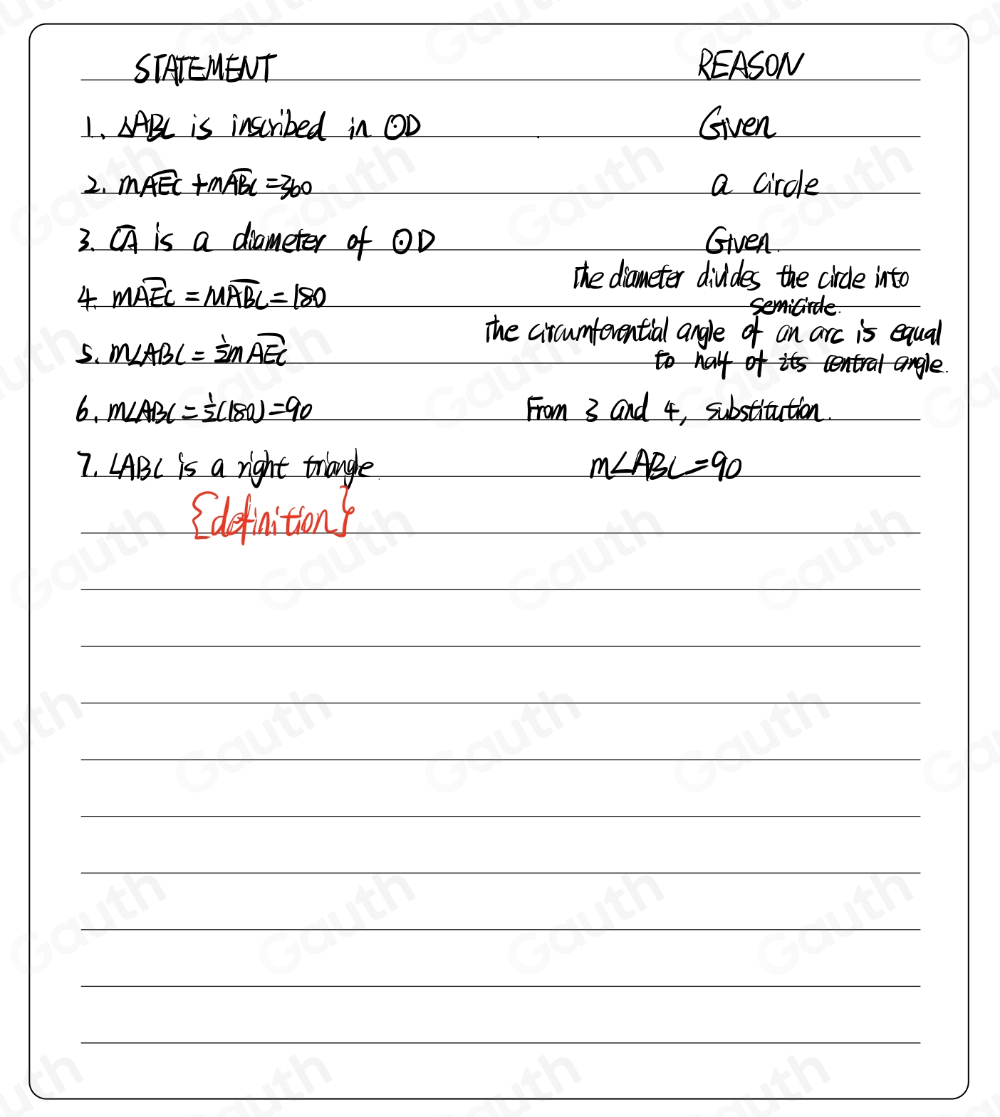 STATEMENT REASON
1. △ABC is inscribed in ⊙D Given
2. mAEC + mABC = 360 a circle
3. CA is a diameter of ⊙D Given.
4. mAEC = mABC = 180 The diameter divides the circle into
semicircle.
5. m∠ABC = ½mAEC The circumferential angle of an arc is equal
to half of its central angle.
6. m∠ABC = ½(180) = 90 From 3 and 4, substitution.
7. ∠ABC is a right triangle. m∠ABC = 90
{definition}
Gauth